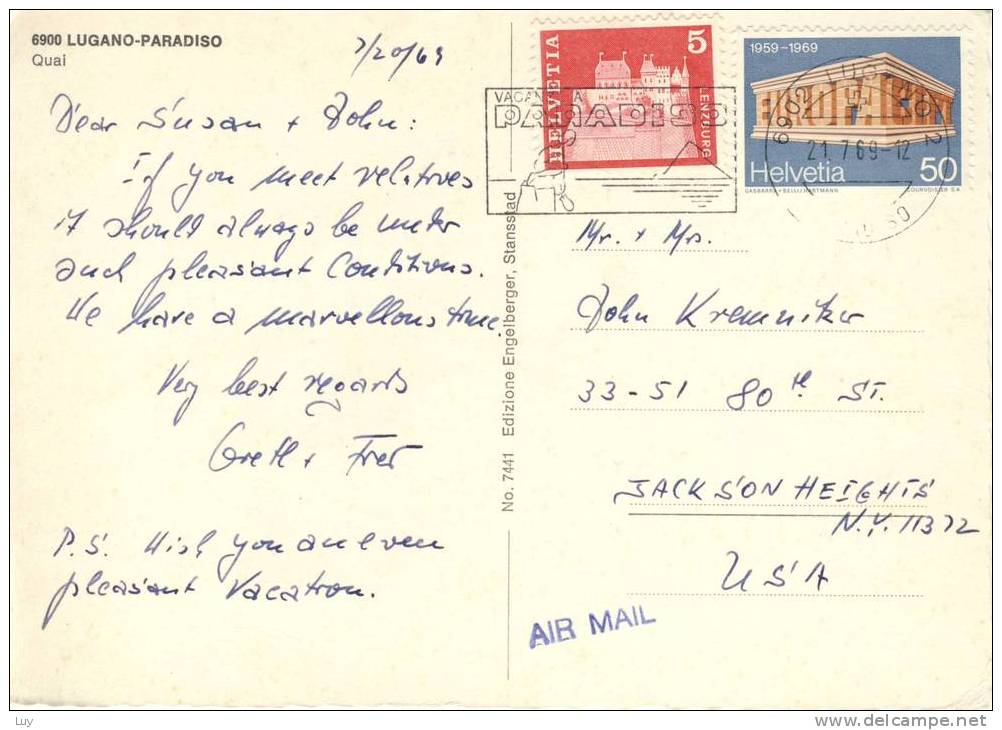 6900 LUGANO-PARADISO
Quai
7/20/69
Dear Susan + John:
If you meet relatives
it should always be under
such pleasant Conditions.
We have a marvellous time.
Very best regards
Gretl + Fred
P.S. Wish you an even
pleasant Vacation.
No. 7441 Edizione Engelberger, Stansstad
HELVETIA
5
LENZBURG
1959-1969
Helvetia 50
GASBARRA+BELLI/HARTMANN COURVOISIER S.A.
PARADISO
6902
21.7.69-12
Mr. + Mrs.
John Kremnitzer
33-51 80th ST.
JACKSON HEIGHTS
N.Y. 11372
USA
AIR MAIL
Luy
www.delcampe.net